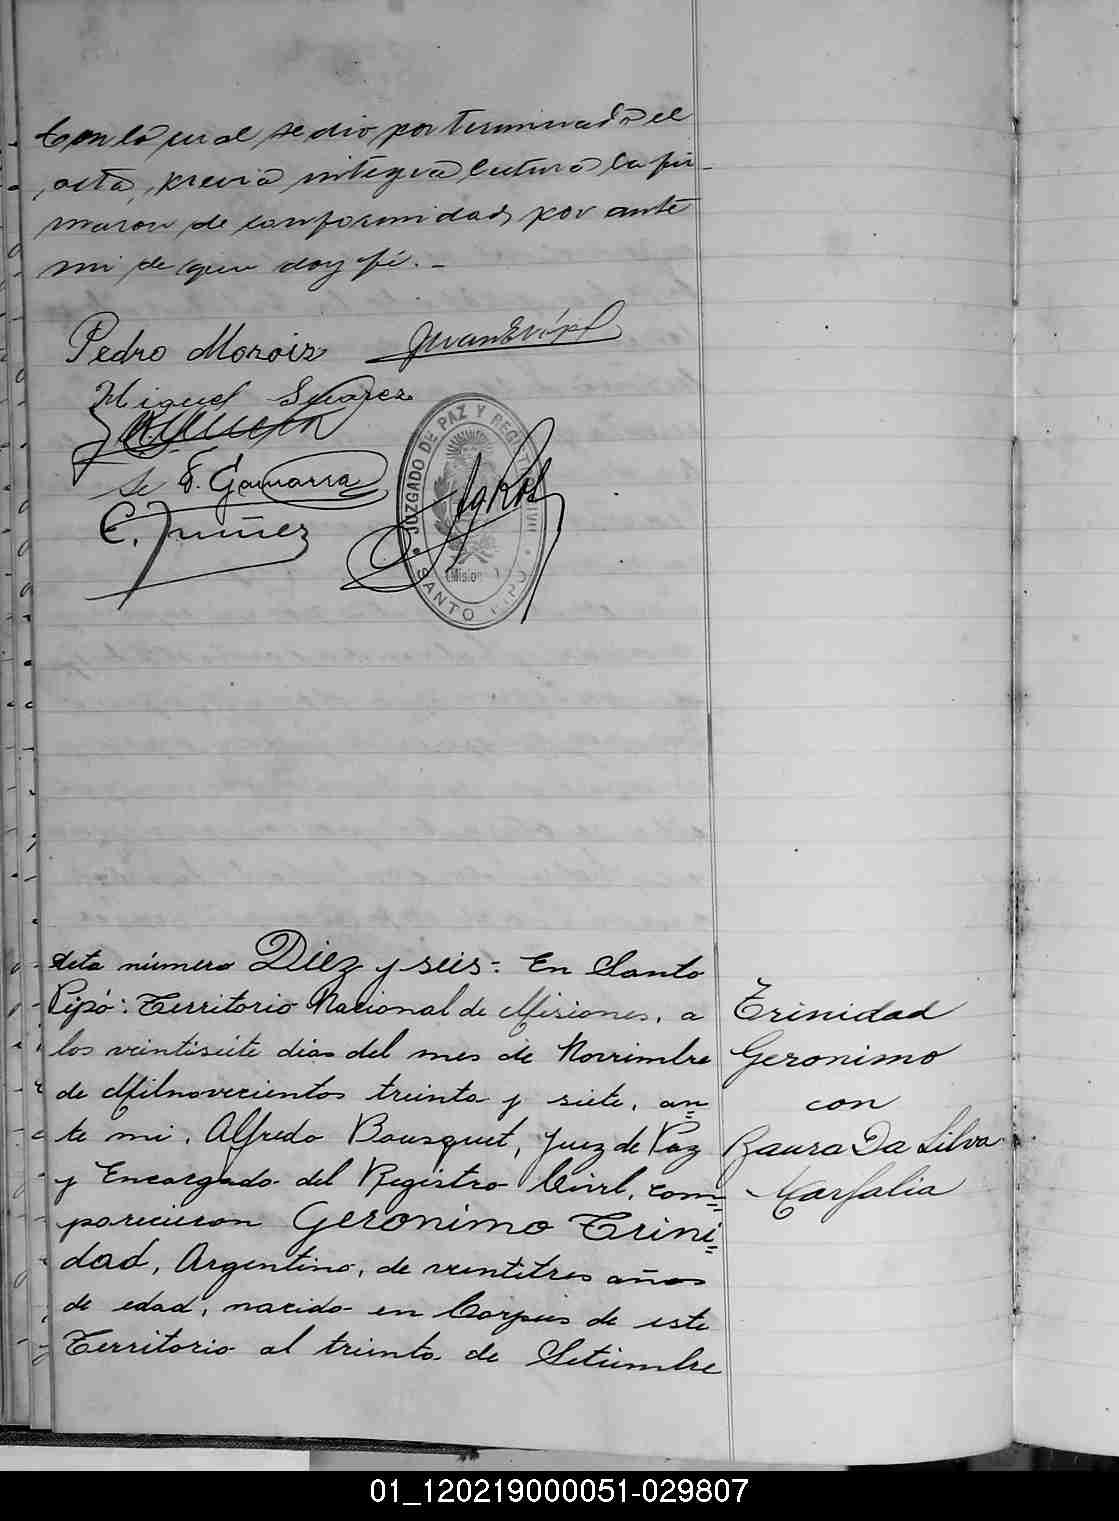 Con lo cual se dio por terminado el
acta, previa integra lectura la fir-
maron de conformidad, por ante
mi de que doy fé.-
Pedro Moroiz
Miguel Suarez
F. Gamarra
E. Nuñez
JUZGADO DE PAZ Y REGISTRO CIVIL
(Misiones)
SANTO PIPÓ
Acta número Diez y seis.- En Santo
Pipó: Territorio Nacional de Misiones, a
los veintisiete dias del mes de Noviembre
de Milnovecientos treinta y siete, an=
te mi, Alfredo Bousquet, Juez de Paz
y Encargado del Registro Civil, com=
parecieron Geronimo Trini=
dad, Argentino, de veintitres años
de edad, nacido en Corpus de este
Territorio al treinta de Setiembre
Trinidad
Geronimo
con
Laura Da Silva
Marfalia
01_120219000051-029807